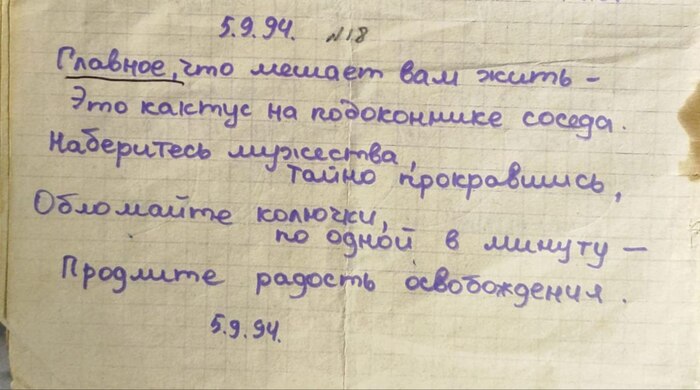 5.9.94. №18
Главное, что мешает вам жить –
Это кактус на подоконнике соседа.
Наберитесь мужества,
тайно прокравшись,
Обломайте колючки,
по одной в минуту —
Продлите радость освобождения.
5.9.94.